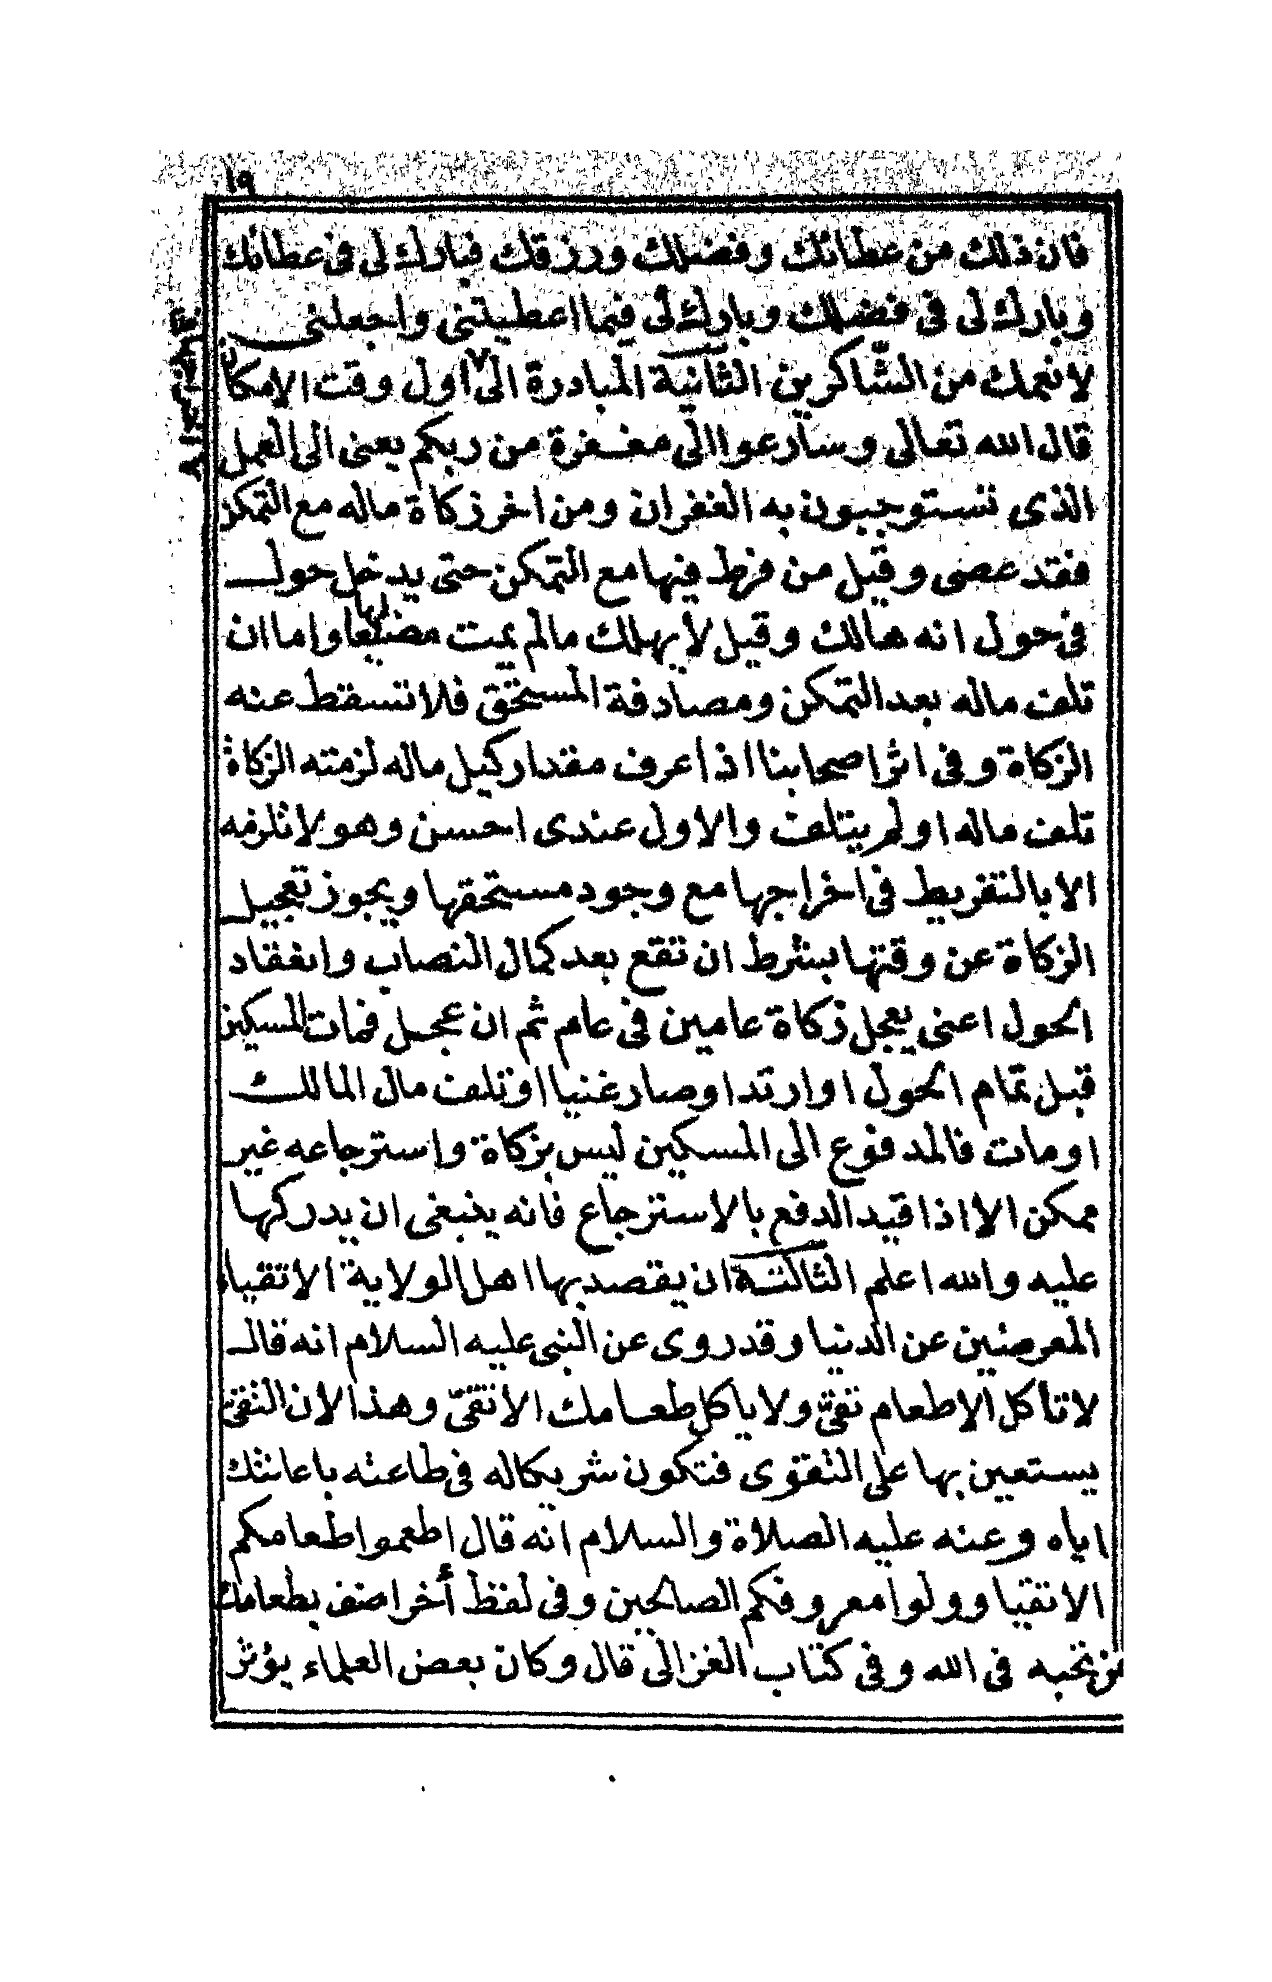 ١٩
فان ذلك من عطائك وفضلك ورزقك فبارك لى فى عطائك
وبارك لى فى فضلك وبارك لى فيما اعطيتنى واجعلنى
لانعمك من الشاكرين الثانية المبادرة الى اول وقت الامكان
قال الله تعالى وسارعوا الى مغفرة من ربكم يعنى الى العمل
الذى تستوجبون به الغفران ومن اخر زكاة ماله مع التمكن
فقد عصى وقيل من فرط فيها مع التمكن حتى يدخل حول
فى حول انه هالك وقيل لا يهلك مالم يمت مضيعا لها واما ان
تلف ماله بعد التمكن ومصادفة المستحق فلا تسقط عنه
الزكاة وفى اثر اصحابنا اذا عرف مقدار كيل ماله لزمته الزكاة
تلف ماله اولم يتلف والاول عندى احسن وهو لا تلزمه
الا بالتفريط فى اخراجها مع وجود مستحقها ويجوز تعجيل
الزكاة عن وقتها بشرط ان تقع بعد كمال النصاب وانعقاد
الحول اعنى يعجل زكاة عامين فى عام ثم ان عجل فمات المسكين
قبل تمام الحول او ارتد او صار غنيا او تلف مال المالك
او مات فالمدفوع الى المسكين ليس بزكاة واسترجاعه غير
ممكن الا اذا قيد الدفع بالاسترجاع فانه ينبغى ان يدركها
عليه والله اعلم الثالثة ان يقصد بها اهل الولاية الاتقياء
المعرضين عن الدنيا وقد روى عن النبى عليه السلام انه قال
لا تأكل الا طعام تقى ولا يأكل طعامك الا تقى وهذا لان التقى
يستعين بها على التقوى فتكون شريكا له فى طاعته باعانتك
اياه وعنه عليه الصلاة والسلام انه قال اطعموا طعامكم
الاتقيا وولوا معروفكم الصالحين وفى لفظ أخر اضف بطعامك
من تحبه فى الله وفى كتاب الغزالى قال وكان بعض العلماء يؤثر